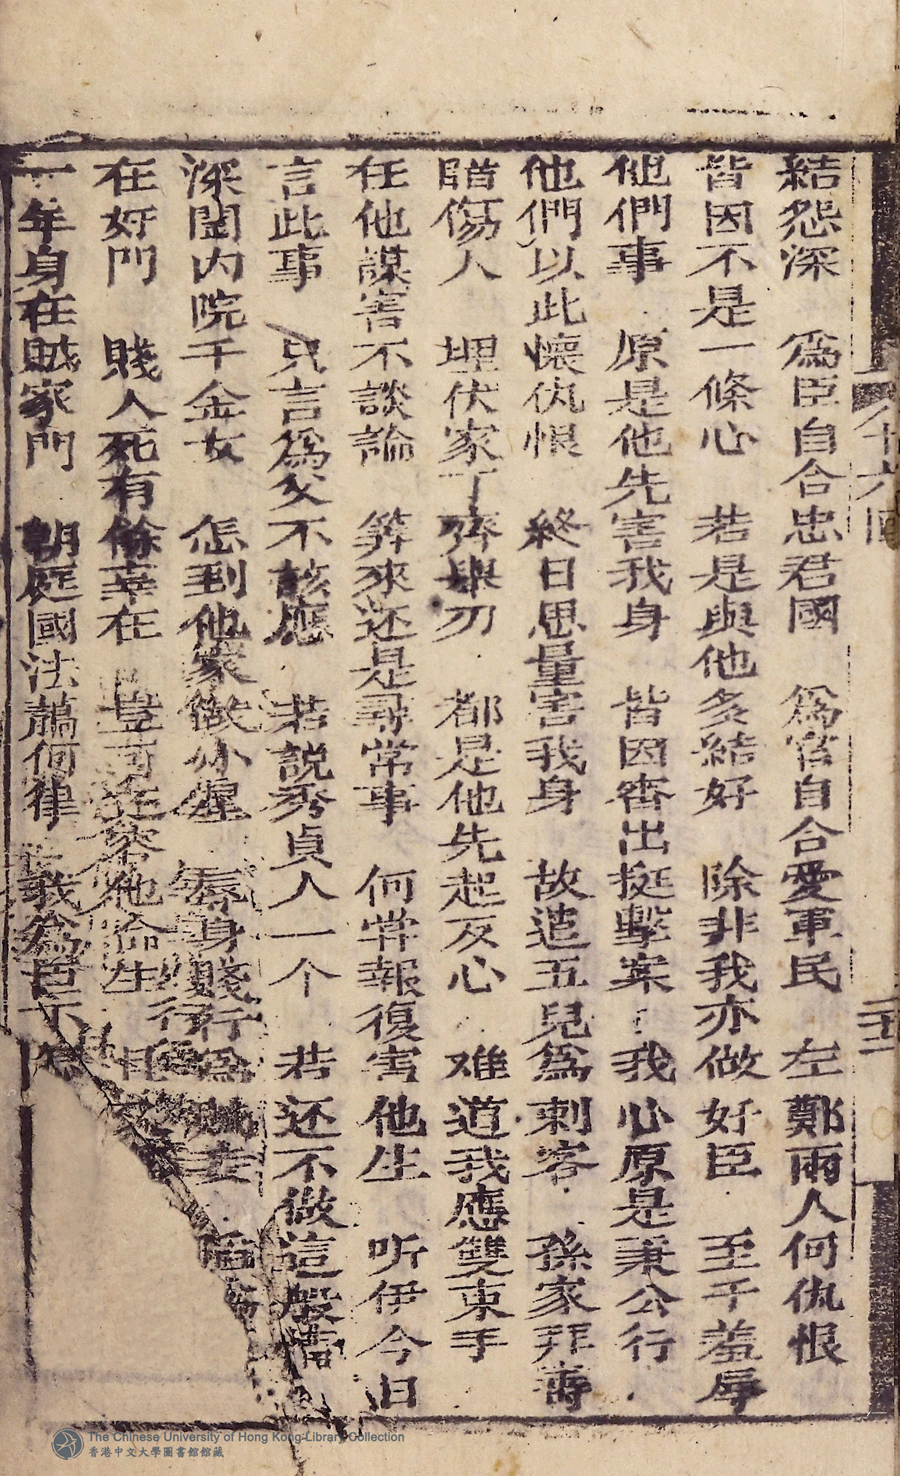 結怨深　為臣自合忠君國　為官自合愛軍民　左鄭兩人何仇恨
皆因不是一條心　若是與他多結好　除非我亦做好臣　至于羞辱
他們事　原是他先害我身　皆因審出挺擊案　我心原是秉公行
他們以此懷仇恨　終日思量害我身　故遣五兒為刺客　孫家拜壽
暗傷人　埋伏家丁齊舉刃　都是他先起反心　难道我應雙束手
在他謀害不談論　算來还是尋常事　何嘗報復害他生　听伊今日
言此事　只言為父不該應　若說秀貞人一个　若还不做這般
深閨內院千金女　怎到他家做小星　辱身賤行為賊妻
在奸門　賤人死有餘辜在　豈可容他偷生
一年身在賊家門　朝庭國法蕭何律　我為臣不
六回
The Chinese University of Hong Kong Library Collection
香港中文大學圖書館館藏